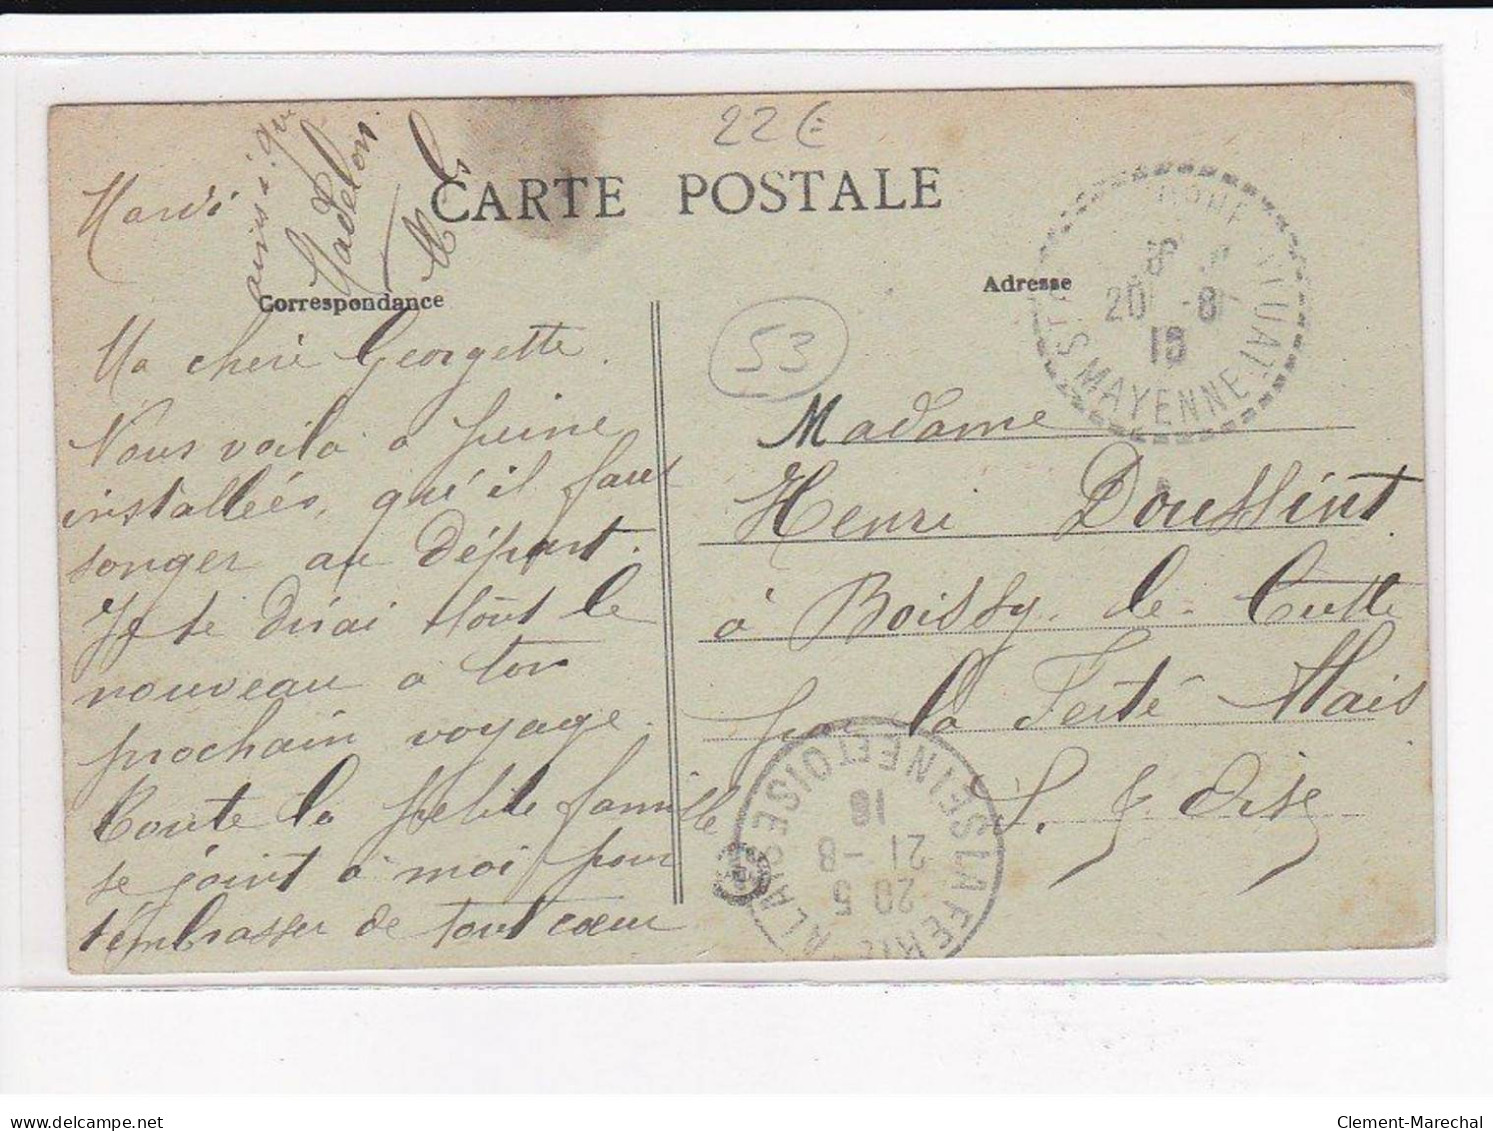 22 €
Mardi
ainsi que
Madelon.
CARTE POSTALE
Correspondance
Adresse
53
Ma chère Georgette.
Nous voilà à peine
installées, qu'il faut
songer au départ.
Je te dirai tout le
nouveau à ton
prochain voyage.
Toute la petite famille
se joint à moi pour
t'embrasser de tout cœur
Madame
Henri Doussint
à Boissy-le-Cutté
par la Ferté Alais
S. & Oise
20 -8
18
MAYENNE
LA FERTE ALAIS
SEINE ET OISE
20 5
21 -8
18
www.delcampe.net
Clement-Marechal